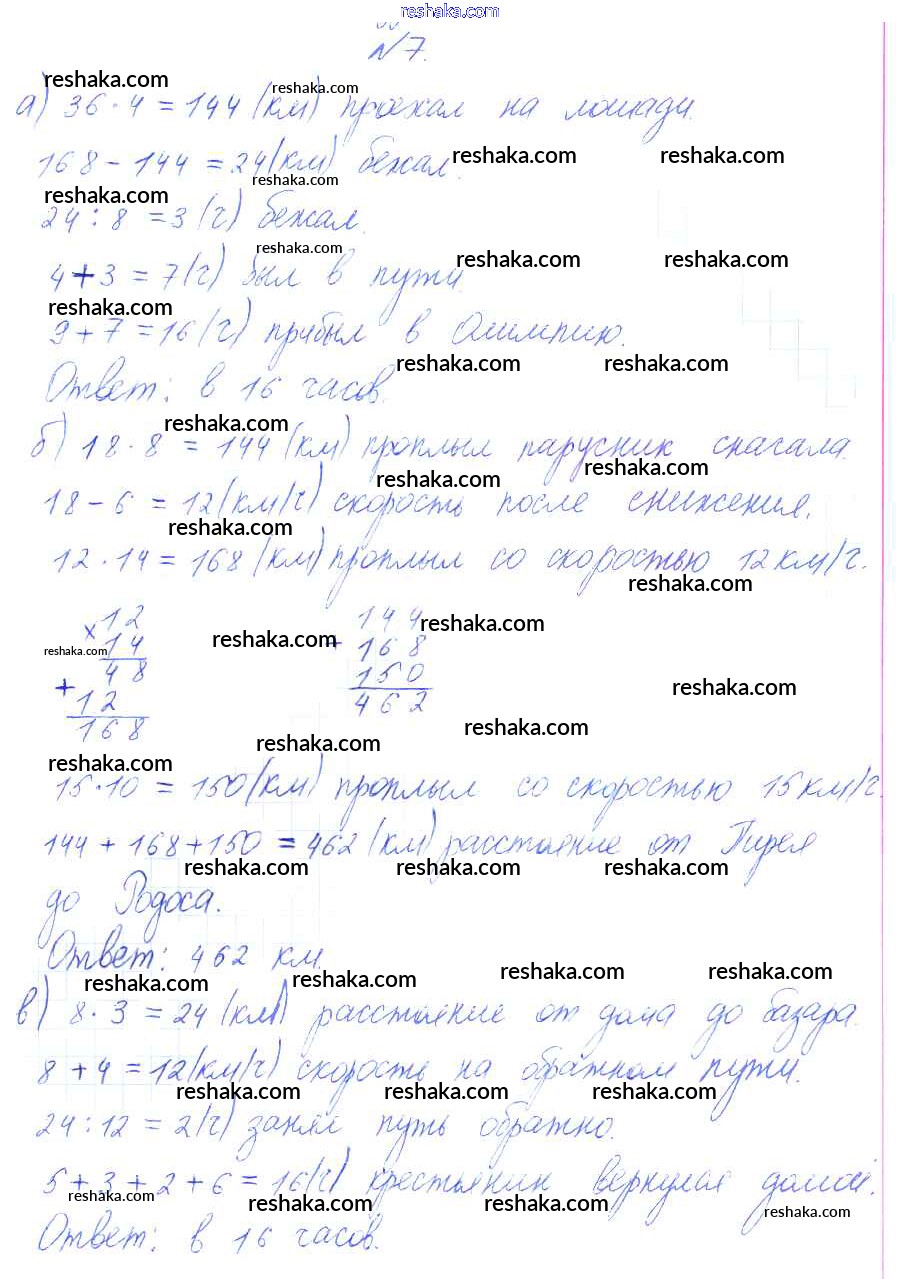 reshaka.com
№7.
reshaka.com reshaka.com
а) 36 · 4 = 144 (км) проехал на лошади.
reshaka.com reshaka.com
168 - 144 = 24 (км) бежал.
reshaka.com reshaka.com
24 : 8 = 3 (ч) бежал.
reshaka.com reshaka.com reshaka.com
4 + 3 = 7 (ч) был в пути.
reshaka.com
9 + 7 = 16 (ч) прибыл в Олимпию.
reshaka.com reshaka.com
Ответ: в 16 часов.
reshaka.com
б) 18 · 8 = 144 (км) проплыл парусник сначала.
reshaka.com reshaka.com
18 - 6 = 12 (км/ч) скорость после снижения.
reshaka.com
12 · 14 = 168 (км) проплыл со скоростью 12 км/ч.
reshaka.com
× 12 144
reshaka.com 14 reshaka.com + 168 reshaka.com
48 150
+ 12 462 reshaka.com
168 reshaka.com
reshaka.com reshaka.com
15 · 10 = 150 (км) проплыл со скоростью 15 км/ч.
144 + 168 + 150 = 462 (км) расстояние от Пирея
reshaka.com reshaka.com reshaka.com
до Родоса.
Ответ: 462 км.
reshaka.com reshaka.com reshaka.com reshaka.com
в) 8 · 3 = 24 (км) расстояние от дома до базара.
8 + 4 = 12 (км/ч) скорость на обратном пути.
reshaka.com reshaka.com reshaka.com
24 : 12 = 2 (ч) занял путь обратно.
5 + 3 + 2 + 6 = 16 (ч) крестьянин вернулся домой.
reshaka.com reshaka.com reshaka.com reshaka.com
Ответ: в 16 часов.